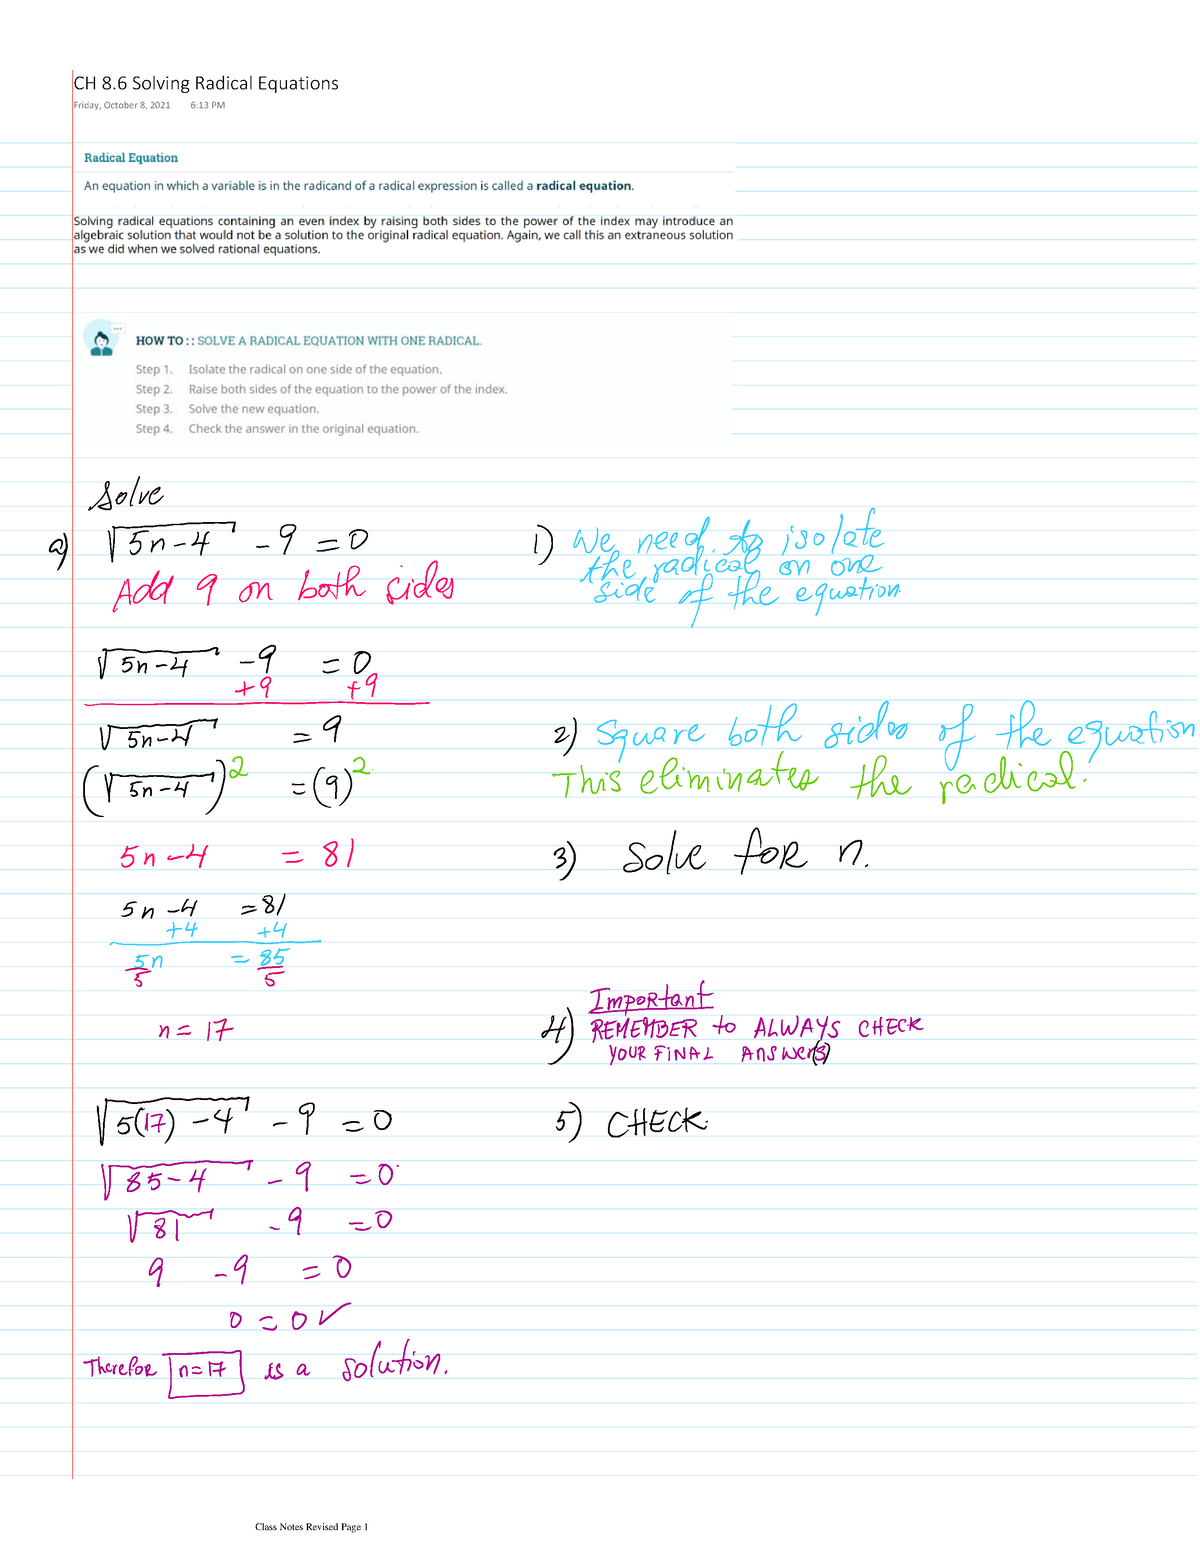 CH 8.6 Solving Radical Equations
Friday, October 8, 2021 6:13 PM
Radical Equation
An equation in which a variable is in the radicand of a radical expression is called a radical equation.
Solving radical equations containing an even index by raising both sides to the power of the index may introduce an
algebraic solution that would not be a solution to the original radical equation. Again, we call this an extraneous solution
as we did when we solved rational equations.
HOW TO : : SOLVE A RADICAL EQUATION WITH ONE RADICAL.
Step 1. Isolate the radical on one side of the equation.
Step 2. Raise both sides of the equation to the power of the index.
Step 3. Solve the new equation.
Step 4. Check the answer in the original equation.
Solve
a) √(5n-4) -9 = 0
Add 9 on both sides
1) We need to isolate
the radical on one
side of the equation
√(5n-4) -9 = 0
+9 +9
√(5n-4) = 9
2) Square both sides of the equation
(√(5n-4))² = (9)²
This eliminates the radical.
5n-4 = 81
3) Solve for n.
5n-4 = 81
+4 +4
5n = 85
5 5
n = 17
Important
4) REMEMBER to ALWAYS CHECK
YOUR FINAL Answer(s)
√(5(17)-4) -9 = 0
5) CHECK:
√(85-4) -9 = 0
√81 -9 = 0
9 -9 = 0
0 = 0 ✓
Therefor n=17 is a solution.
Class Notes Revised Page 1